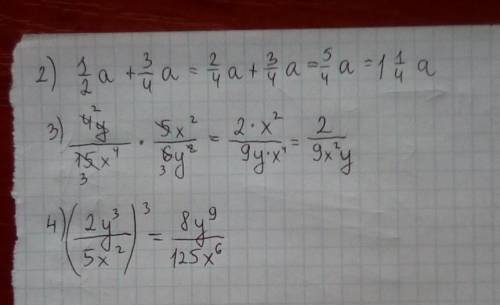 2) 1/2 a + 3/4 a = 2/4 a + 3/4 a = 5/4 a = 1 1/4 a
3) 4̶²y̶/1̶5̶₃x⁴ · 5̶x²/6̶₃y²̶ = 2·x²/9y·x⁴ = 2/9x²y
4) (2y³/5x²)³ = 8y⁹/125x⁶